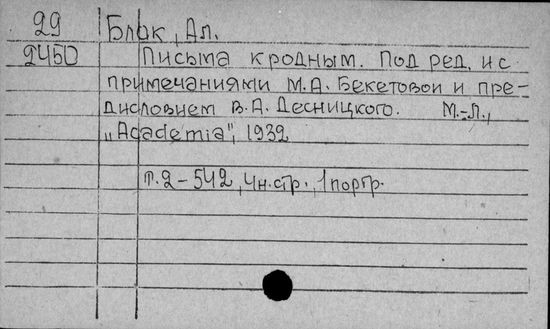 29 Блок, Ал.
2450 Письма к родным. Под ред. и с
примечаниями М.А. Бекетовой и пре-
дисловием В.А. Десницкого. М.-Л.,
„Academia", 1932
т.2 – 542, 4н.стр., 1 портр.